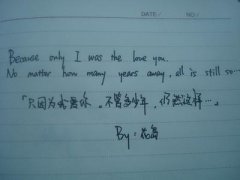 DATE/ NO/
Because only I was the love you.
No matter how many years away, all is still so...
「只因为我爱你。不管多少年，仍然这样…」
By: